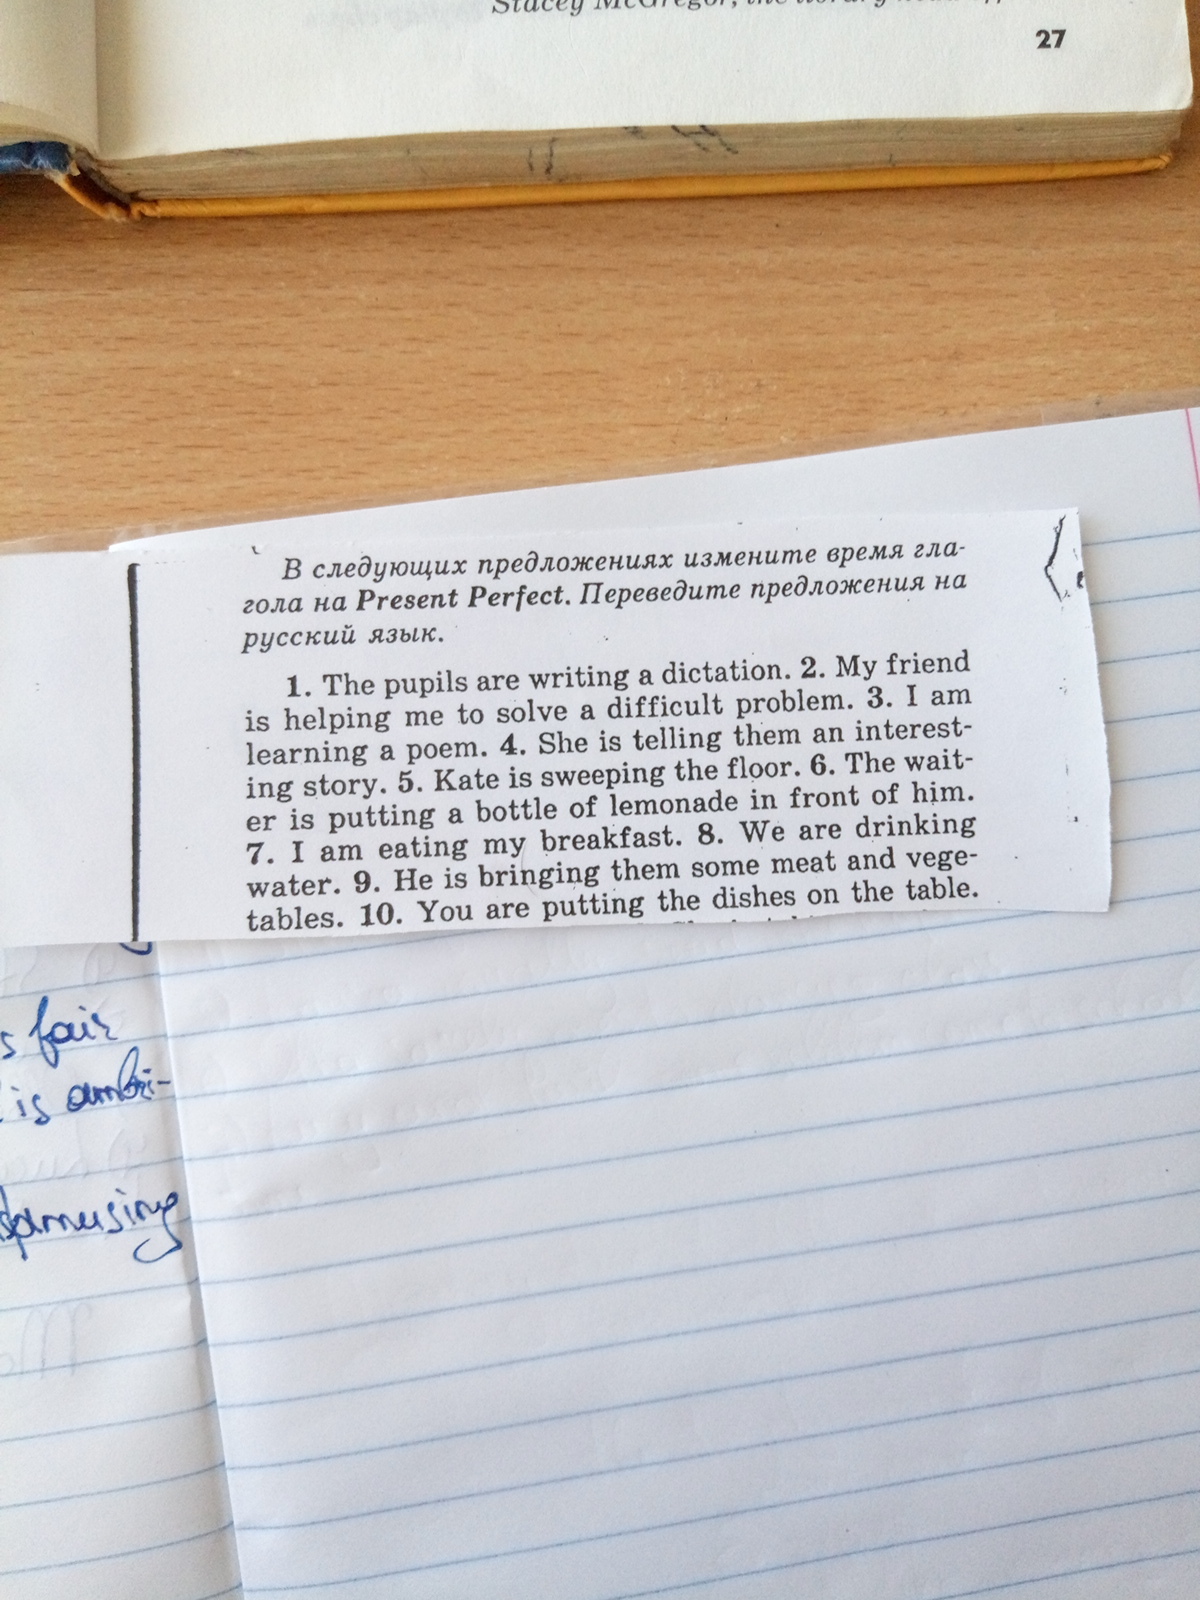 Stacey McGregor, the library
27
В следующих предложениях измените время гла-
гола на Present Perfect. Переведите предложения на
русский язык.
1. The pupils are writing a dictation. 2. My friend
is helping me to solve a difficult problem. 3. I am
learning a poem. 4. She is telling them an interest-
ing story. 5. Kate is sweeping the floor. 6. The wait-
er is putting a bottle of lemonade in front of him.
7. I am eating my breakfast. 8. We are drinking
water. 9. He is bringing them some meat and vege-
tables. 10. You are putting the dishes on the table.
s fair
is ambi-
amusing